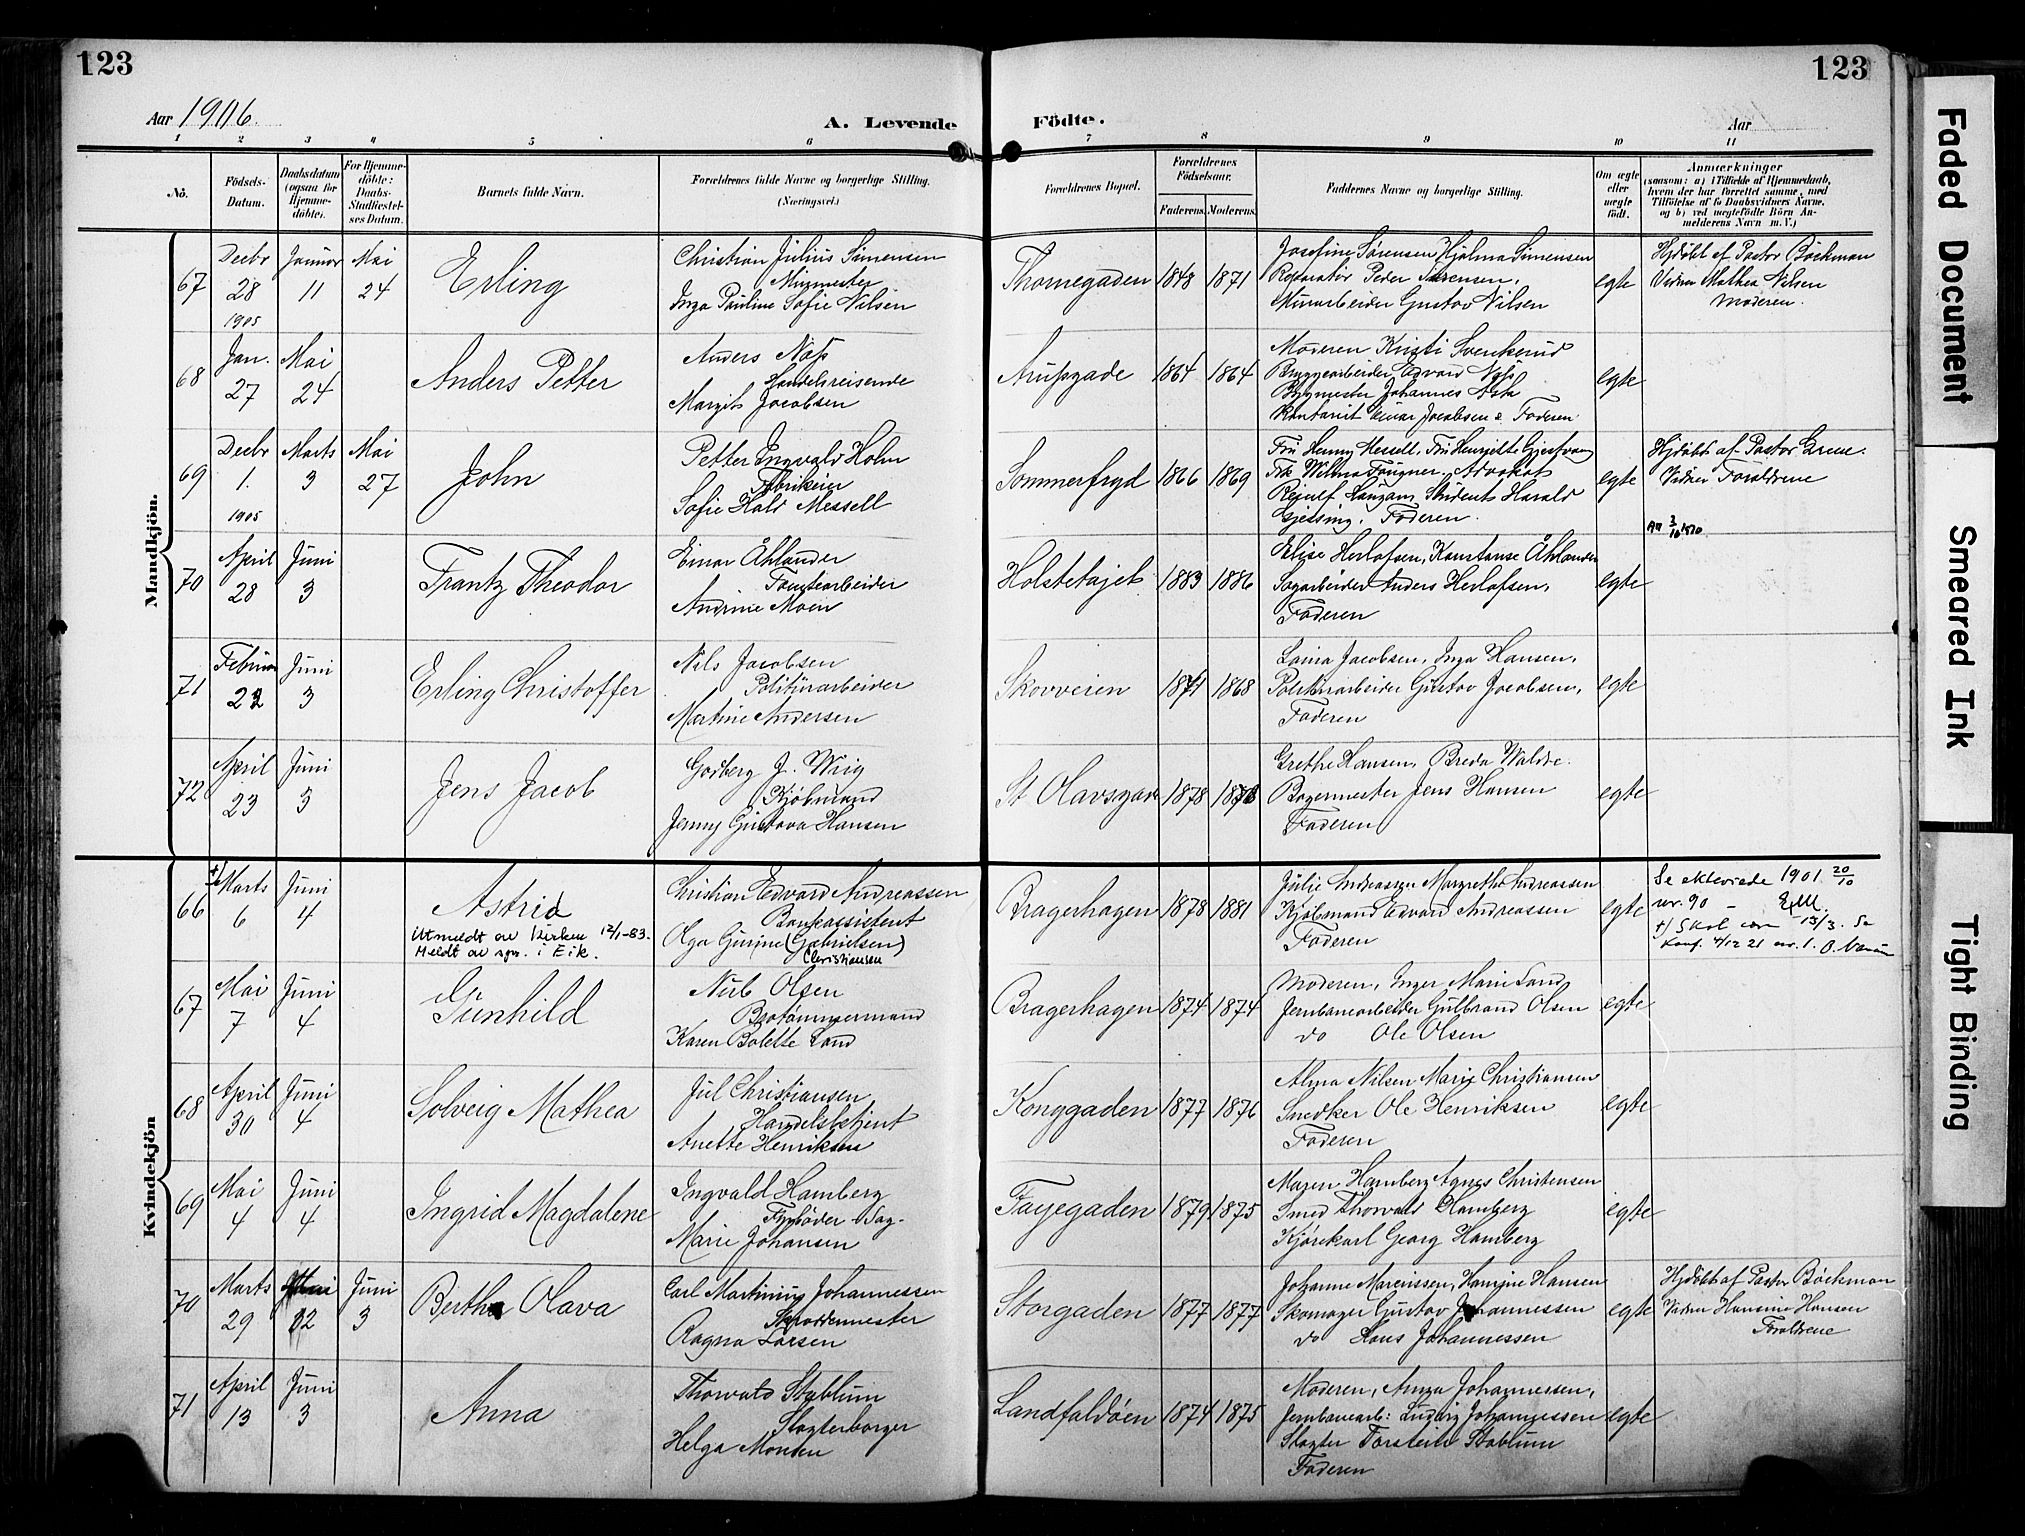 123
123
Aar 1906.
A. Levende
Födte.
Aar
1 2 3 4 5 6 7 8 9 10 11
No.
Födsels-Datum.
Daabsdatum (ogsaa for Hjemmedöbte).
For Hjemmedöbte: Daabs-Stadfæstelses Datum.
Barnets fulde Navn.
Forældrenes fulde Navne og borgerlige Stilling. (Næringsvei.)
Forældrenes Bopæl.
Forældrenes Födselsaar.
Faderens. Moderens.
Faddernes Navne og borgerlige Stilling.
Om ægte eller uægte födt.
Anmærkninger
(saasom: a) i Tilfælde af Hjemmedaab, hvem der har forrettet samme, med Tilföielse af to Daabsvidners Navne. og b) ved uægtefödte Börn Anmelderens Navn m. V.)
Mandkjön.
67
Decbr 28 1905
Januar 11
Mai 24
Erling
Christian Julius Simensen
Murmester
Inga Pauline Sofie Nilsen
Thornegaden
1848 1871
Josefine Sørensen, Hjalma Simensen
Reparatør Peder Sørensen,
Murarbeider Gustav Nilsen
egte
Hjdøbt af Pastor Böckman
Vidner Mathea Nilsen
Moderen.
68
Jan. 27
Mai 24
Anders Petter
Anders Næss
Handelsreisende
Margit Jacobsen
1864 1864
Moderen Kristi Svenkerud
Bryggearbeider Edvard
Bygmester Johannes
Kontorist Einar Jacobsen & Faderen
egte
69
Decbr 1. 1905
Marts 3
Mai 27
John
Petter Ingvald Holm
Fabrikeier
Sofie Hals Messell
Sommerfryd
1866 1869
Fru Henny Messell, Fru
Frk Wilma Fougner. Advokat
Student Harald
Gjessing. Faderen.
egte
Hjdøbt af Pastor
Vidner Forældrene
70
April 28
Juni 3
Frantz Theodor
Einar Åhlander
Tomtearbeider
Andrine Moen
1883 1886
Elise Herlofsen, Konstanse Åhlander
Sagarbeider Anders Herlofsen,
Faderen
egte
71
Februar
Juni 3
Erling Christoffer
Nils Jacobsen
Politurarbeider
Martine Andersen
Skovveien
1874 1868
Laura Jacobsen, Inga Hansen,
Politurarbeider Gustav Jacobsen,
Faderen
egte
72
April 23
Juni 3
Jens Jacob
Godberg J. Wiig
Kjøbmand
Jenny Gustava Hansen
St Olavsgade
1878
Grethe Hansen, Breda Waldre.
Bagermester Jens Hansen
Faderen
egte
Kvindekjön
66
Marts 6
Juni 4
Astrid
Utmeldt av Kirken 12/1-83.
Meldt av spr. i Eik.
Christian Edvard Andreassen
Bankassistent
Olga Gurine (Gabrielsen)
Christiansen
Bragerhagen
1878 1881
Julie Andreassen Margrethe Andreassen
Kjøbmand Edvard Andreassen
Faderen
egte
Se ekteviede 1901 20/10
nr. 90 -
67
Mai 7
Juni 4
Gunhild
Nub Olsen
Brotømmermand
Karen Bolette Sand
Bragerhagen
1874 1874
Moderen, Inger Marie Sand
Jernbanearbeider Gulbrand Olsen
do Ole Olsen
egte
68
April 30
Juni 4
Solveig Mathea
Jul Christiansen
Handelsbetjent
Anette Henriksen
Konggaden
1877 1876
Alma Nilsen Marie Christiansen
Snedker Ole Henriksen
Faderen
egte
69
Mai 4
Juni 4
Ingrid Magdalene
Ingvald Hamberg
Fyrbøder Sag.
Marie Johansen
Fayegaden
1879 1875
Maren Hamberg Agnes Christensen
Smed Thorvald Hamberg
Kjørekarl Georg Hamberg
egte
70
Marts 29
Juni 3
Bertha Olava
Carl Martinius Johannessen
Skræddermester
Ragna Larsen
Storgaden
1877 1877
Johanne Marcussen, Hansine Hansen
Skomager Gustav Johannessen
do Hans Johannessen
egte
Hjdøbt af Pastor Böckman
Vidner Hansine Hansen
Forældrene
71
April 13
Juni 3
Anna
Thorvald Stablum
Slagterborger
Helga Monsen
Landfaldøen
1874 1875
Moderen, Anna Johannessen,
Jernbanearb: Ludvig Johannessen
Slagter Torstein Stablum
Faderen
egte
Faded Document
Smeared Ink
Tight Binding